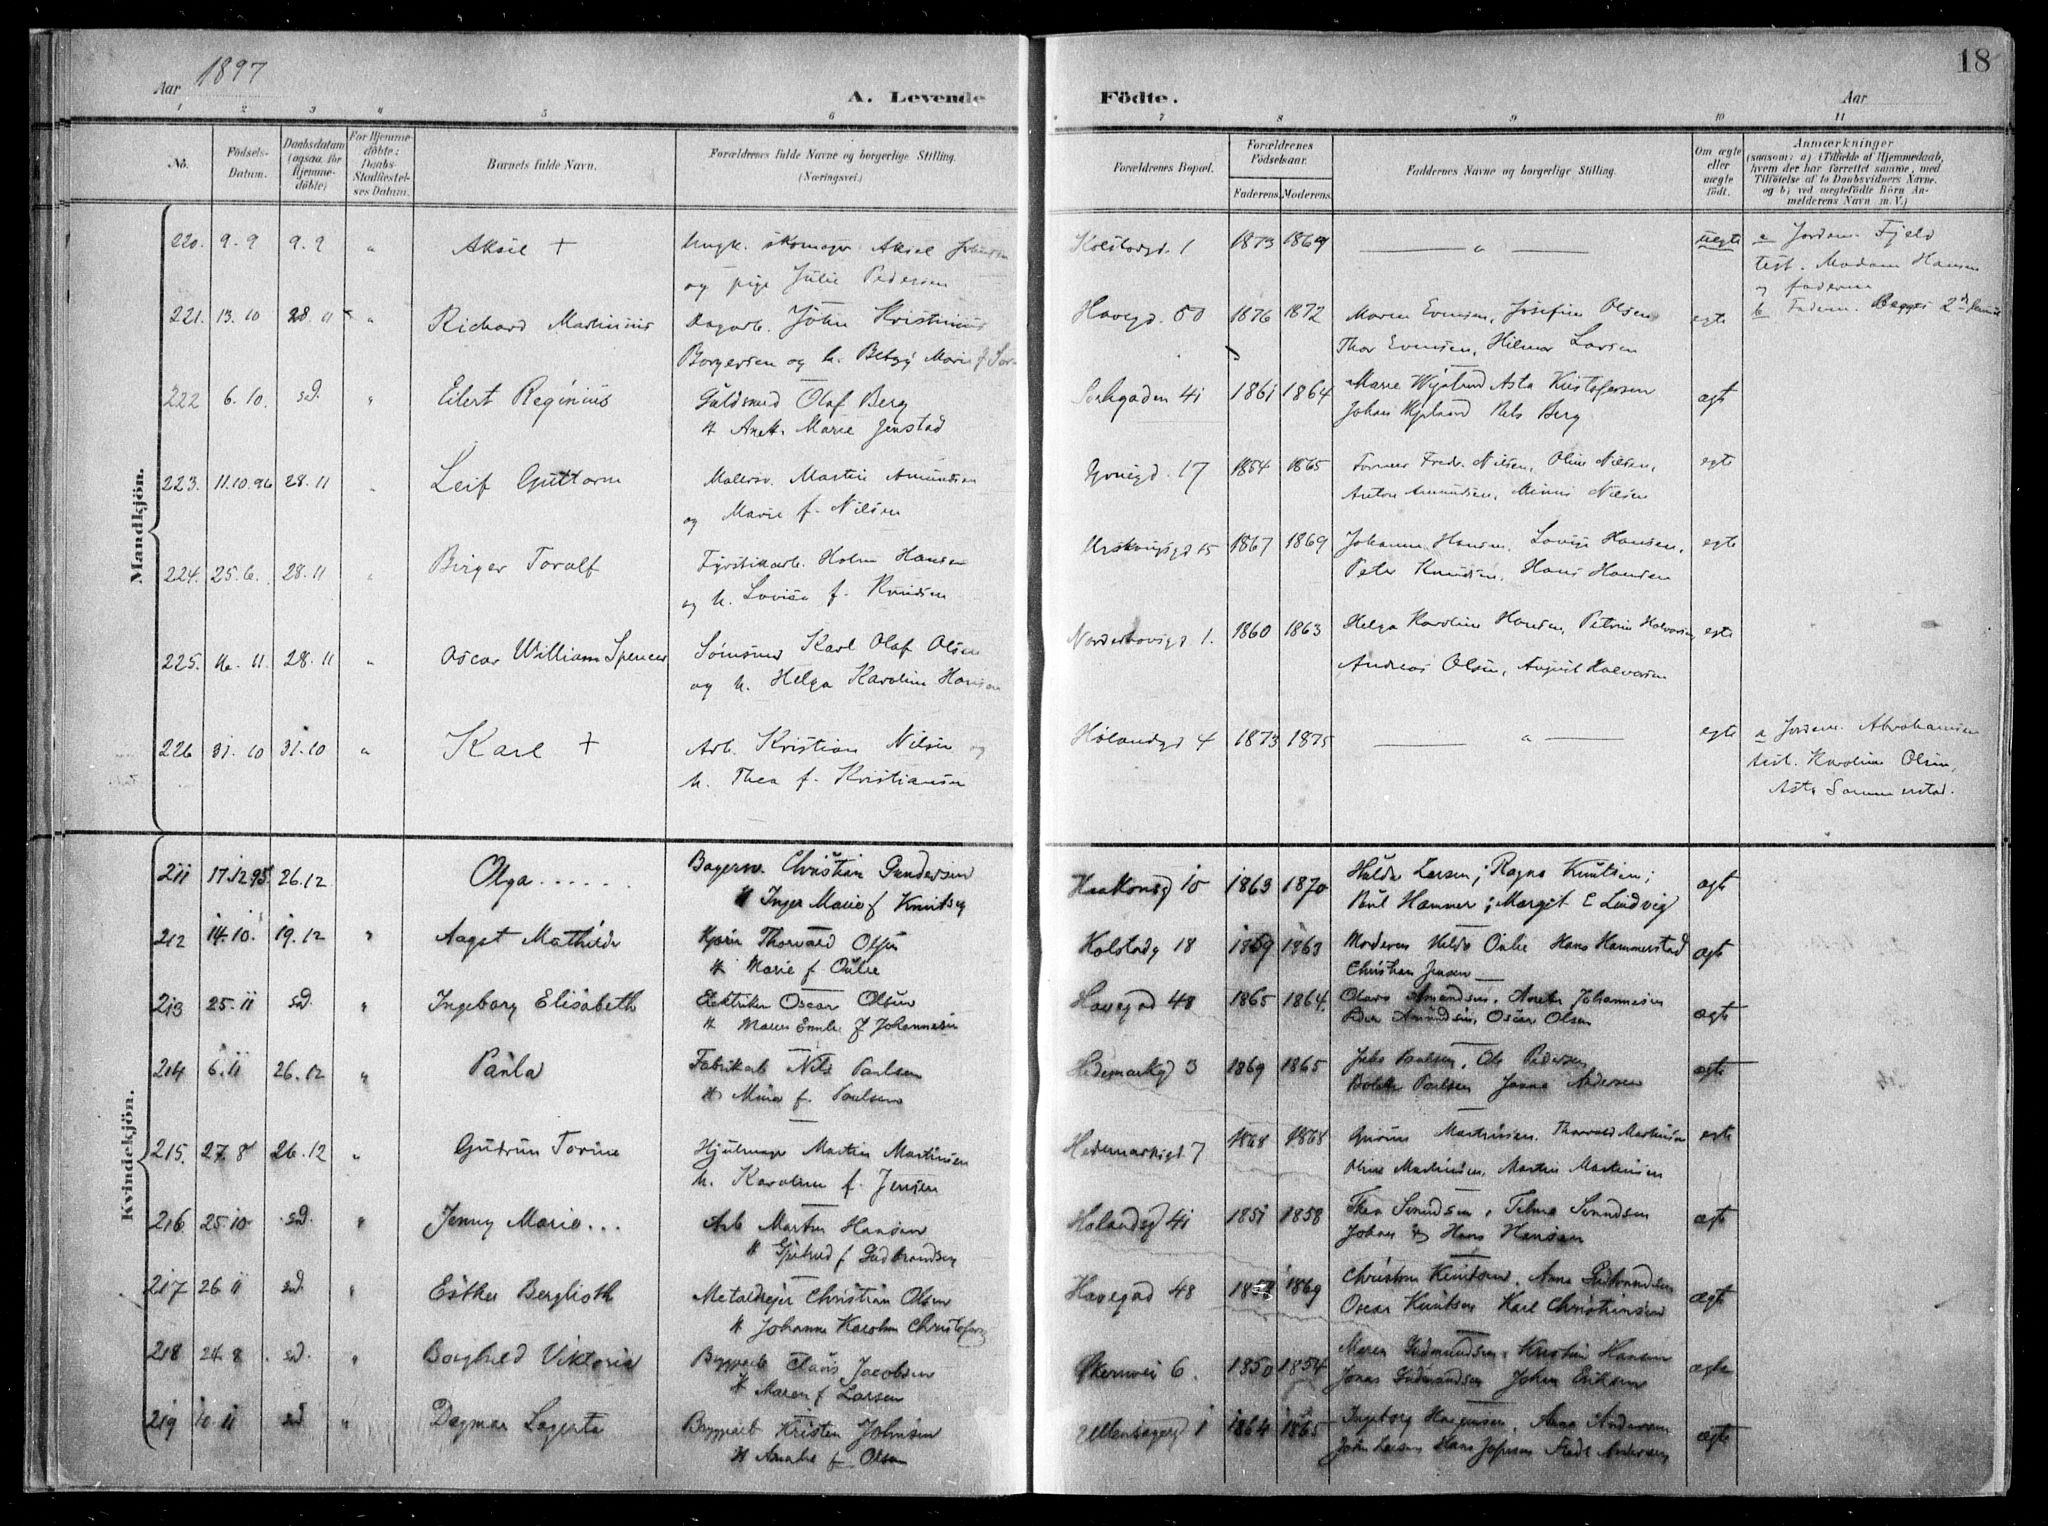 Aar 1897
A. Levende Födte.
18
Aar
1 2 3 4 5 6 7 8 9 10 11
No.
Födsels-Datum.
Daabsdatum (ogsaa for Hjemmedöbte)
For Hjemmedöbte: Daabs-Stadfæstelses Datum.
Barnets fulde Navn.
Forældrenes fulde Navne og borgerlige Stilling. (Næringsvei.)
Forældrenes Bopæl.
Forældrenes Födselsaar.
Faderens. Moderens.
Faddernes Navne og borgerlige Stilling.
Om ægte eller uægte födt.
Anmærkninger
(saasom: a) i Tilfælde af Hjemmedaab, hvem der har forrettet samme, med Tilföielse af to Daabsvidners Navne. og b) ved uegtefödte Börn Anmelderens Navn m. V.)
Mandkjön.
220. 9.9 9.9 " Aksel + Ungk. skomager Aksel
og pige Julie Pedersen
1 1873 1869 " uegte a Jordem. Fjeld
test. Madam Hansen
og faderen
b Faderen
221. 13.10 28.11 " Richard Martinius Dagarb. John Kristinius
Borgersen og h. Betzy Marie f.
Havegd. 50 1876 1872 Maren Evensen, Josefine Olsen
Thor Evensen, Hilmar Larsen egte
222 6.10. sd. " Eilert Reginius Guldsmed Olaf Berg
H Anett. Marie Jenstad
41 1861 1864 Marie Asta Kristofersen
Johan Nils Berg ægt
223. 11.10.96 28.11 " Leif Guttorm Malersv. Martin Amundsen
og Marie f. Nilsen
17 1854 1865 Fredr. Nilsen, Oline Nilsen,
Anton Amundsen, Minni Nilsen egte
224. 25.6. 28.11 " Birger Toralf Fyrstikarb. Holm Hansen
og h. Lovise f. Knudsen
15 1867 1869 Johanne Hansen, Lovise Hansen,
Peter Knudsen, Hans Hansen egte
225. 16.11 28.11 " Oscar William Spencer Sömand Karl Olaf Olsen
og h. Helga Karoline Hansen
Norderhovsgd 1. 1860 1863 Helga Karoline Hansen, Petrine Halvorsen
Andreas Olsen, August Halvorsen egte
226 31.10 31.10 " Karl + Arb. Kristian Nilsen og
h. Thea f. Kristiansen
Hölandsgd 4 1873 1875 " egte a Jordem. Abrahamsen
test. Karoline Olsen,
Asta Sommerstad.
Kvindekjön.
211 17.12.95. 26.12 Olga...... Christian Gundersen
H Inger Marie f Knutsen
Haakonsg 10 1863 1870 Hulda Larsen; Ragna Knutsen;
Paul Hammer; Margit E Lindvig ægt
212 14.10. 19.12 " Aagot Mathilde Thorvald Olsen
H Marie f
Kolstadg 18 1859 1863 Moderen Hilda Hans Hammerstad
Christian Jensen ægt
213 25.11 sd. " Ingeborg Elisabeth Elektriker Oscar Olsen
H Maren Emilie f Johannesen
Havegad 48 1865 1864. Olava Amundsen. Anette Johannesen
Peder Amundsen, Oscar Olsen ægte
214 6.11 26.12 " Paula Fabrikarb Nils Paulsen
H Mina f. Paulsen
Hedemarksgd 3 1869 1865 Paulsen, Ole Pedersen
Paulsen Andersen ægte
215. 27.8 26.12 " Gudrun Torine Hjulmager Martin Martinsen
h. Karoline f. Jensen
Hedemarksgd 7 1868 1868 Martinsen. Thorvald Martinsen
Oline Martinsen, Martin Martinsen egte
216 25.10 sd. " Jenny Marie... Arb Martin Hansen
H f Gudbrandsen
Hölandsg 41 1851 1858 Thea
Johan & Hans Hansen ægte
217 26 11 sd. " Esther Berglioth Christian Olsen
H Johanne Karoline Christofersen
Havegad 48 1869 Christian Knutsen. Anna Gudbrandsen
Oscar Knutsen Karl Christiansen ægte
218 24.8. sd. " Borghild Viktoria Claus Jacobsen
H Maren f Larsen
Økernvei 6. 1850 1854 Maren Gudmundsen, Kristine Hansen
Jonas Gudmundsen Johan Eriksen ægte
219 10.11 sd " Dagmar Lagerta Kristen Johnsen
H Amalie f Olsen
Ullensagergd 1 1864 1865 Ingeborg Anna Andersen
John Larsen Hans Fredr Andersen ægte